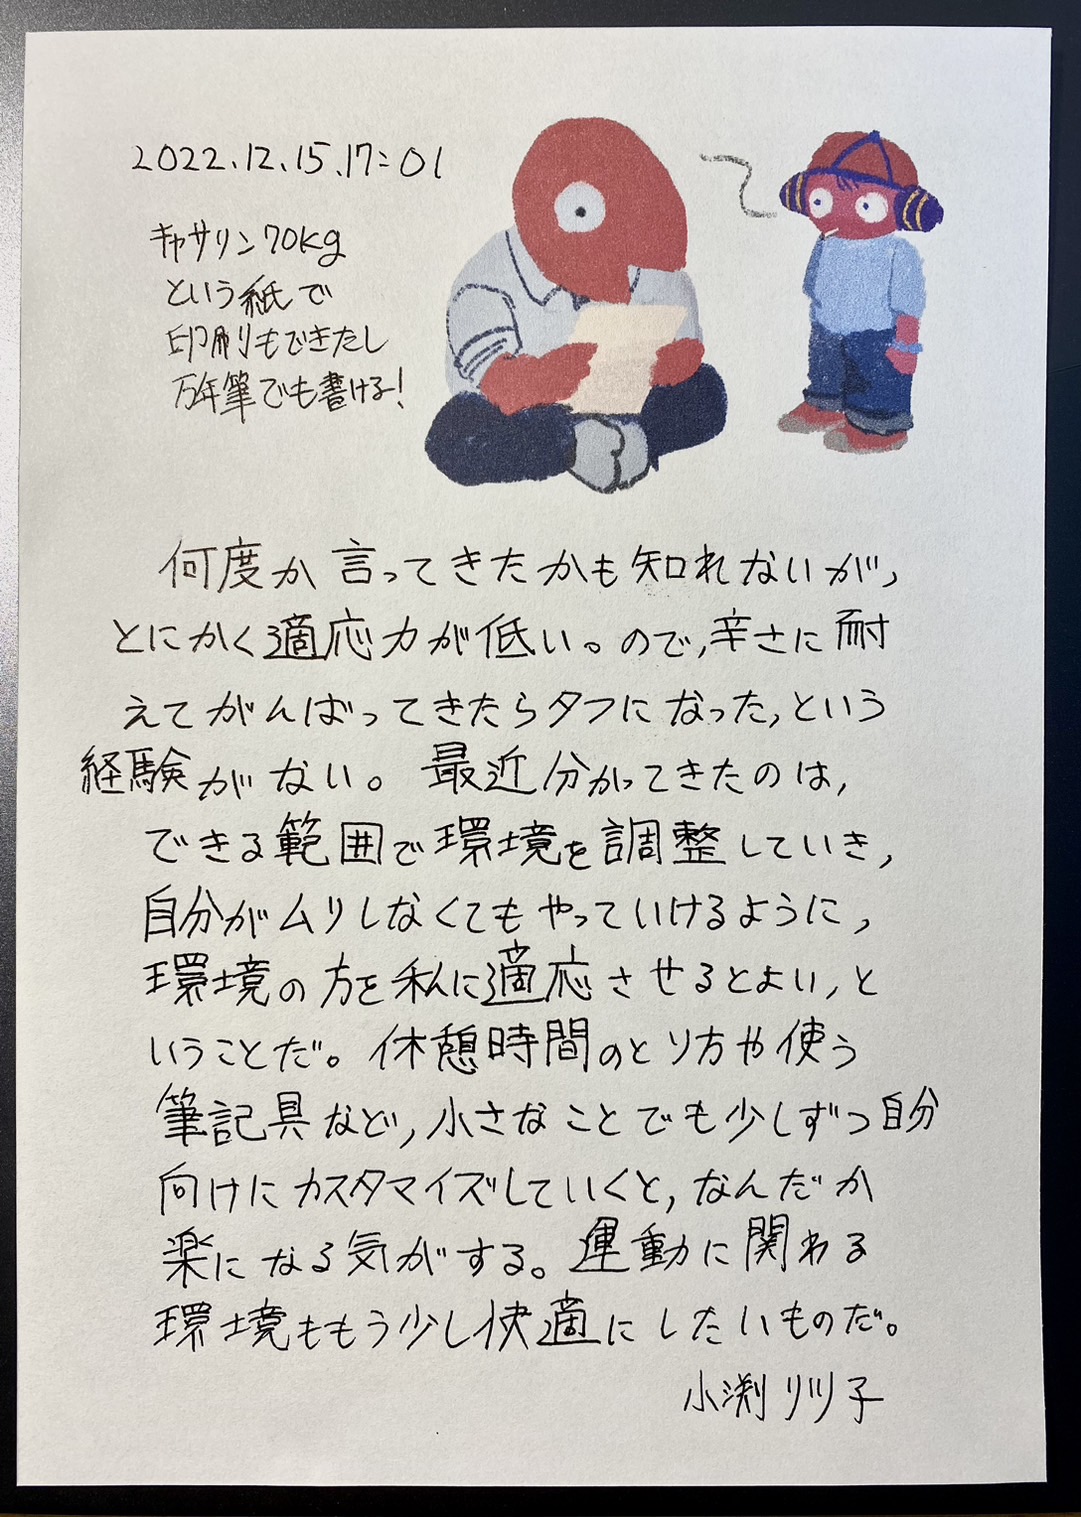 2022.12.15.17:01
キャサリン70kg
という紙で
印刷もできたし
万年筆でも書ける!
何度か言ってきたかも知れないが,
とにかく適応力が低い。ので,辛さに耐
えてがんばってきたらタフになった,という
経験がない。最近分かってきたのは,
できる範囲で環境を調整していき,
自分がムリしなくてもやっていけるように,
環境の方を私に適応させるとよい,と
いうことだ。休憩時間のとり方や使う
筆記具など,小さなことでも少しずつ自分
向けにカスタマイズしていくと,なんだか
楽になる気がする。運動に関わる
環境ももう少し快適にしたいものだ。
小渕リツ子